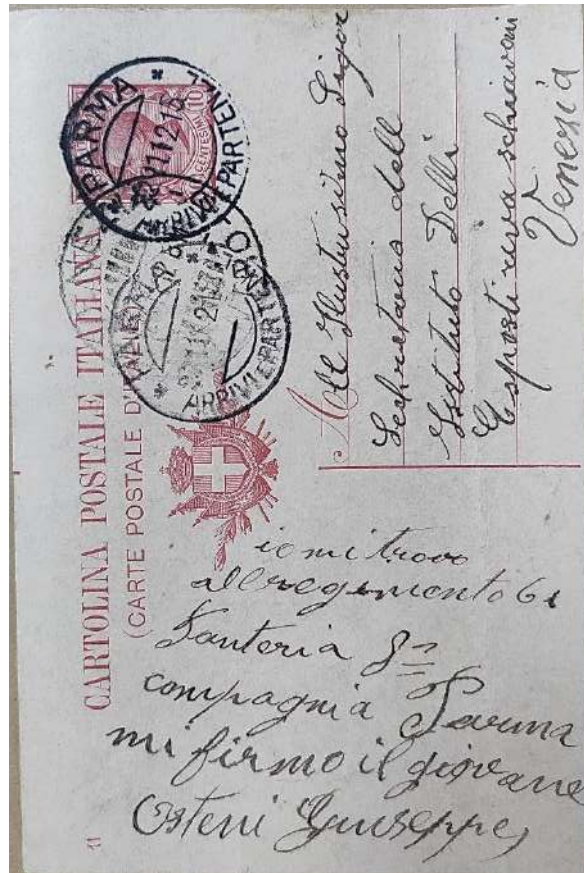 CARTOLINA POSTALE ITALIANA
(CARTE POSTALE D'ITALIE)
10 CENTESIMI
PARMA
ARRIVI E PARTENZE
PARMA
ARRIVI E PARTENZE
All Illustrissimo Sigor
Secretario dell
Istituto Delli
Esposti riva schiavoni
Venezia
io mi trovo
al regimento 61
Fanteria 8a
compagnia Parma
mi firmo il giovane
Osteni Giuseppe